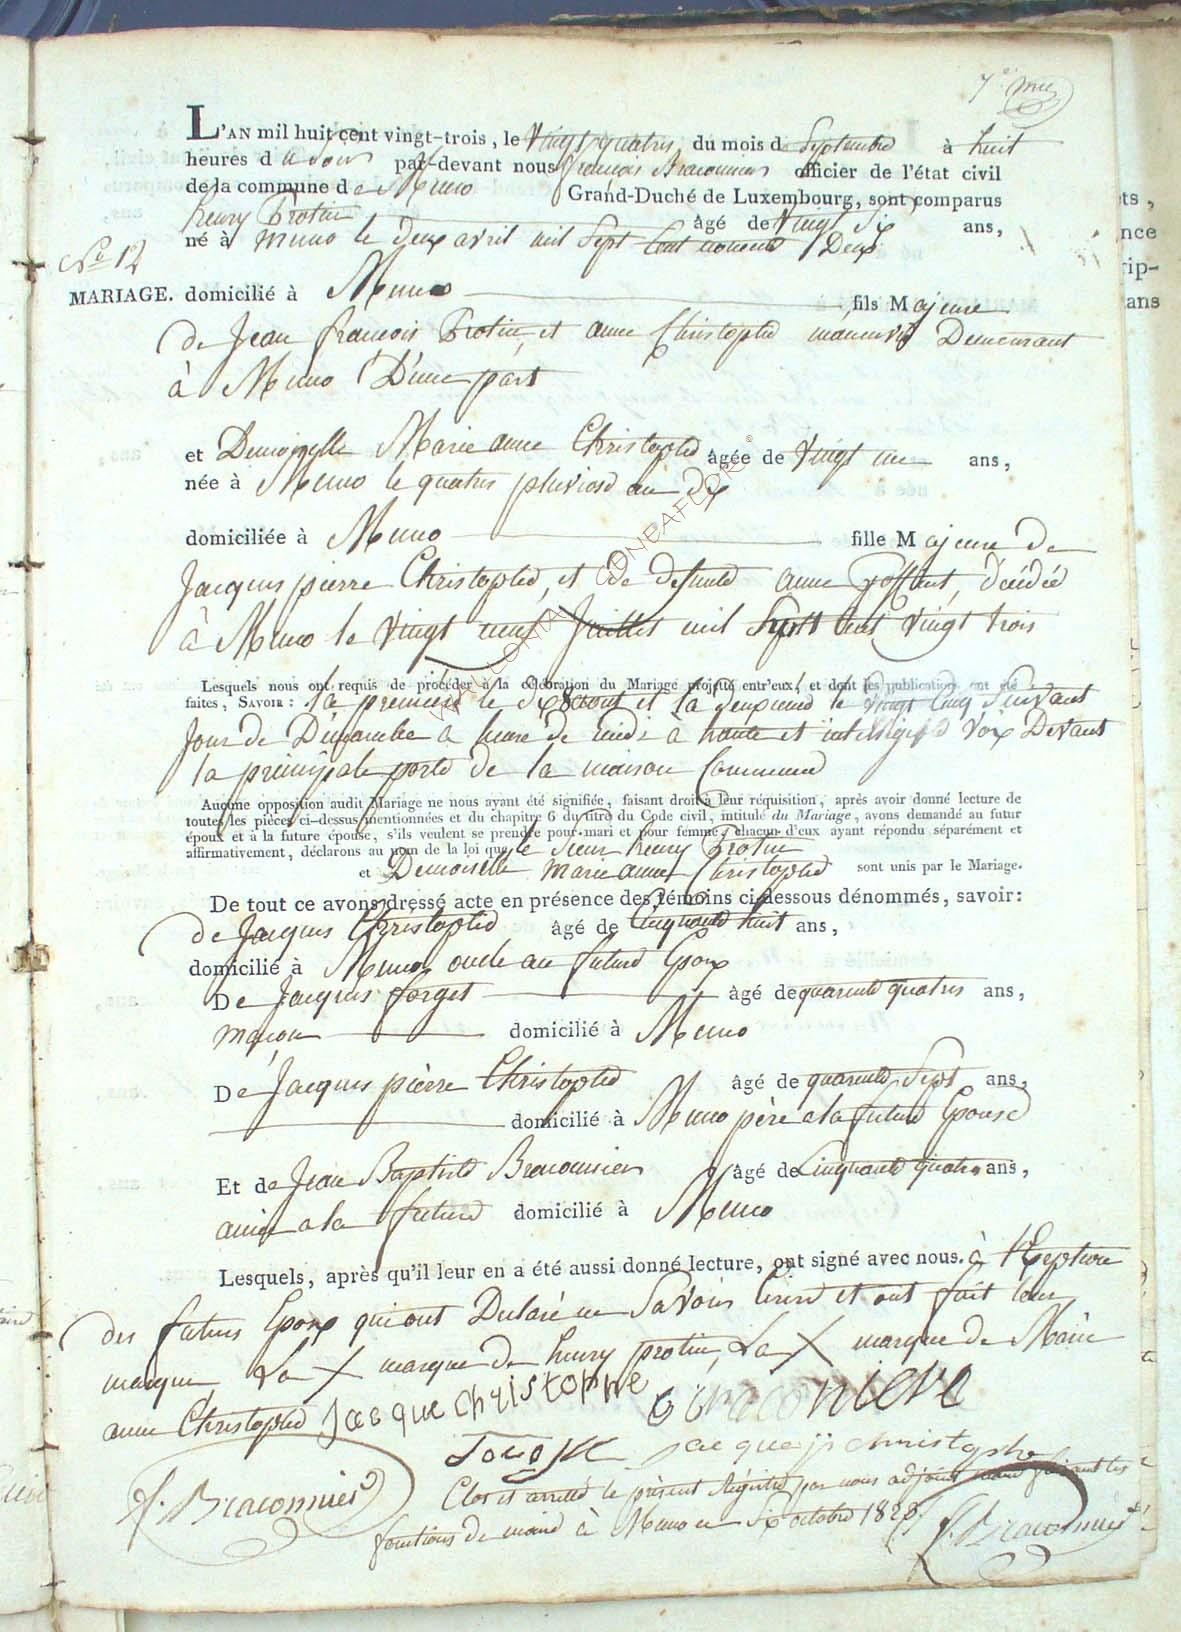 7e
L'AN mil huit cent vingt-trois, le Vingt quatre du mois de Septembre à huit
heures du Soir par-devant nous françois Braconnier officier de l'état civil
de la commune de Muno Grand-Duché de Luxembourg, sont comparus
henry Protin âgé de Vingt Six ans,
né à Muno le deux avril mil Sept Cent nonente Deux
No 12
MARIAGE. domicilié à Muno fils Majeure
de Jean françois Protin, et anne Christophe manuvre Demeurant
à Muno D'une part
et Demoiselle Marie anne Christophe âgée de Vingt un ans,
née à Muno le quatre pluviose an dix
domiciliée à Muno fille Majeure de
Jacques pierre Christophe, et de defunte anne décédée
à Muno le Vingt neuf Juillet mil Sept Cent Vingt trois
Lesquels nous ont requis de procéder à la célébration du Mariage projeté entr'eux, et dont les publications ont été
faites, SAVOIR: la premiere le dix 8 aout et la deuxieme le Vingt Cinq Suivant
Jour de Dimanche a heure de midi a haute et intelligible Voix Devant
la principale porte de la maison Commune
Aucune opposition audit Mariage ne nous ayant été signifiée, faisant droit à leur réquisition, après avoir donné lecture de
toutes les pièces ci-dessus mentionnées et du chapitre 6 du titre du Code civil, intitulé du Mariage, avons demandé au futur
époux et à la future épouse, s'ils veulent se prendre pour mari et pour femme, chacun d'eux ayant répondu séparément et
affirmativement, déclarons au nom de la loi que le Sieur henry Protin
et Demoiselle Marie anne Christophe sont unis par le Mariage.
De tout ce avons dressé acte en présence des témoins ci-dessous dénommés, savoir:
de Jacques Christophe âgé de Cinquante huit ans,
domicilié à Muno oncle au futur Epoux
De Jacques forget âgé de quarente quatre ans,
maçon domicilié à Muno
De Jacques pierre Christophe âgé de quarente Sept ans,
domicilié à Muno père a la future Epouse
Et de Jean Baptiste Braconnier âgé de Cinquante quatre ans,
amis a la future domicilié à Muno
Lesquels, après qu'il leur en a été aussi donné lecture, ont signé avec nous. à l'Exeptions
des futurs Epoux qui ont Declaré ne Savoir Ecrire et ont fait leur
marque La X marque de henry protin, La X marque de Marie
anne Christophe Jacque christophe Braconiere
jacque jp christophe
f. Braconnier
Clos et arretté le présent Régistre par nous adjoint maire faisant les
fonctions de maire à Muno ce Six octobre 1823
f. Braconnier
WALLONIA CONDAFLOR ©